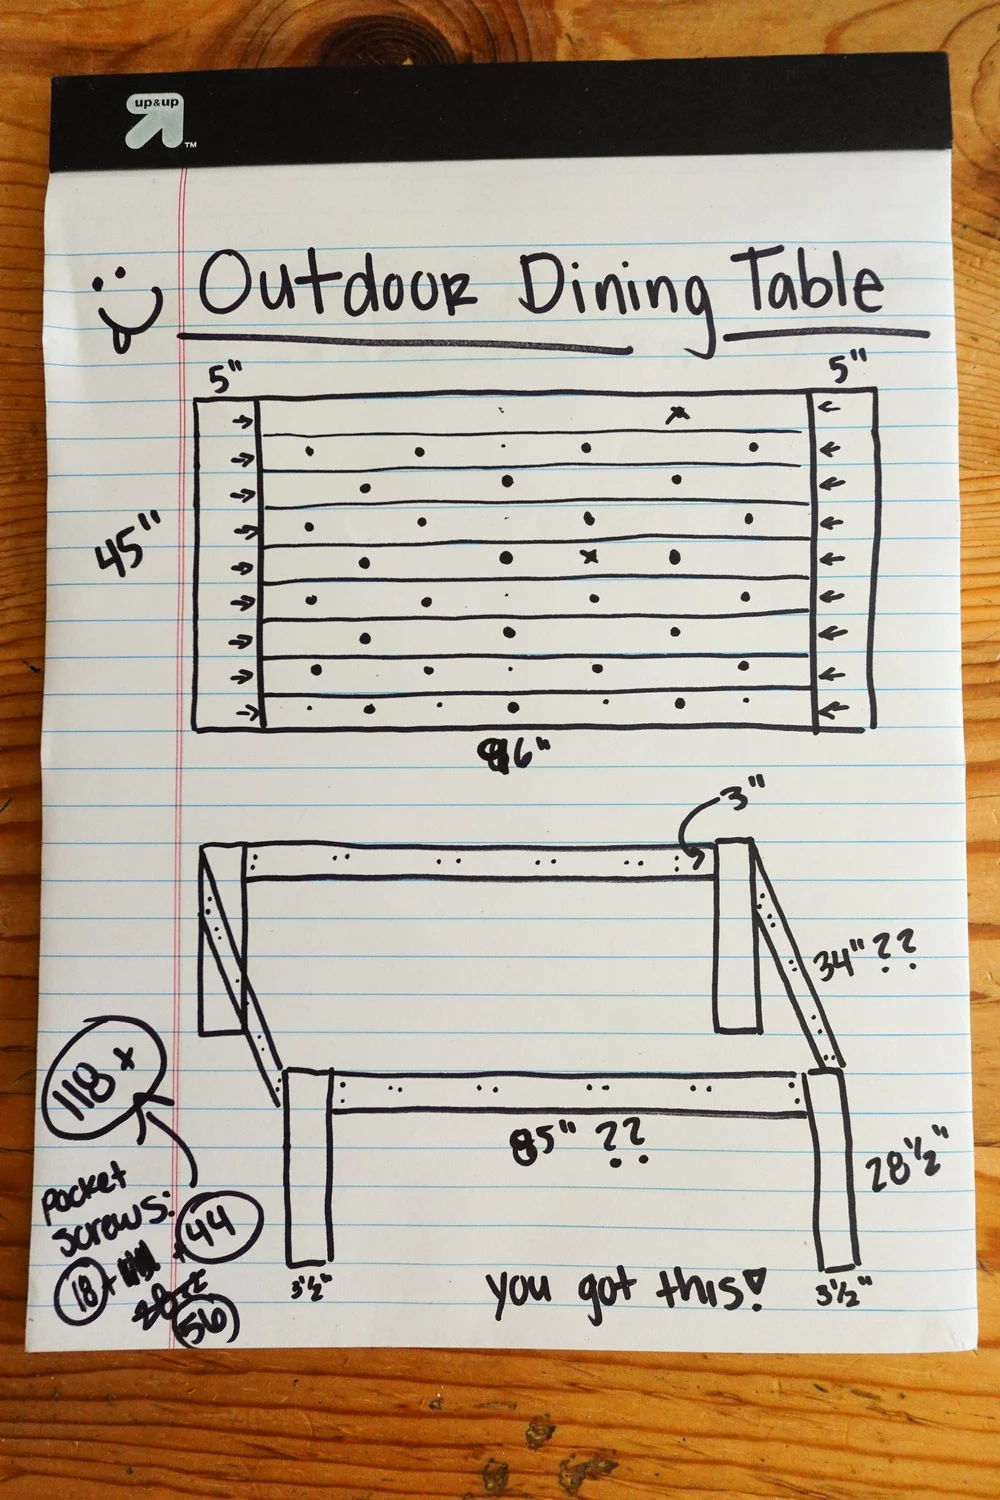 up&up
TM
Outdoor Dining Table
5" 5"
45"
3"
34" ??
118
85" ??
28 1/2"
Pocket
screws:
44
18 +
56
3 1/2" you got this! 3 1/2"